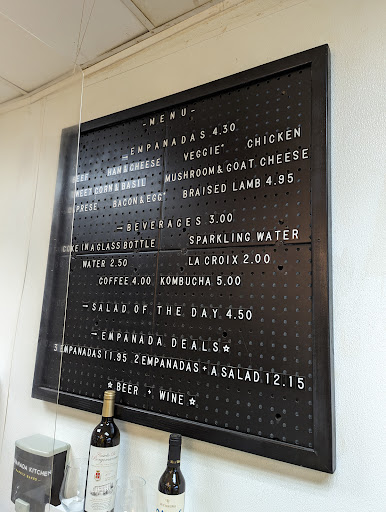 - MENU -
— EMPANADAS 4.30
BEEF HAM & CHEESE VEGGIE* CHICKEN
SWEET CORN & BASIL MUSHROOM & GOAT CHEESE
PRESE BACON & EGG* BRAISED LAMB 4.95
— BEVERAGES 3.00
COKE IN A GLASS BOTTLE SPARKLING WATER
WATER 2.50 LA CROIX 2.00
COFFEE 4.00 KOMBUCHA 5.00
— SALAD OF THE DAY 4.50
— EMPANADA DEALS ☆
3 EMPANADAS 11.95 2 EMPANADAS + A SALAD 12.15
☆ BEER + WINE ☆
PANADA KITCHEN